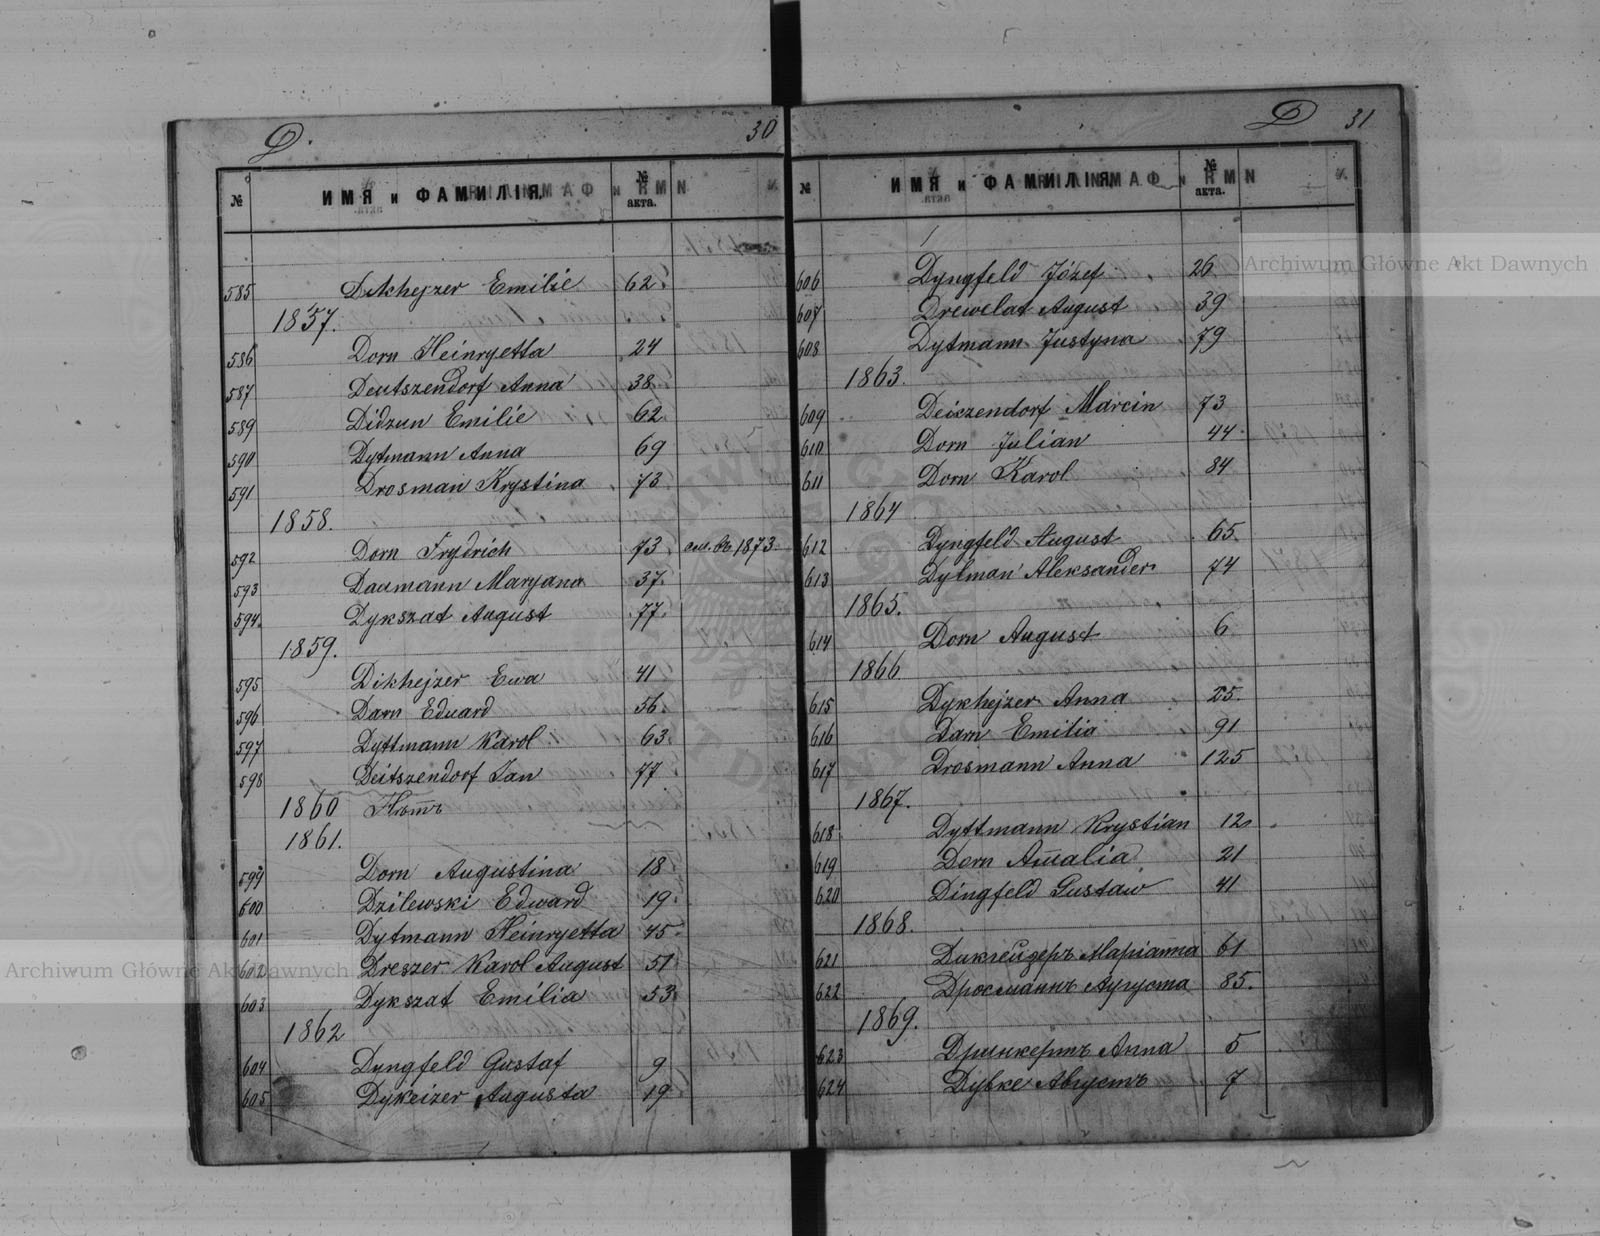 D. 30
№ ИМЯ и ФАМИЛІЯ. № акта.
585 Dikhejzer Emilie 62.
1857.
586 Dorn Heinryetta 24
587 Deutszendorf Anna 38
589 Didzun Emilie 62
590 Dytmann Anna 69
591 Drosman Krystina 73
1858.
592 Dorn Frydrich 73 1873.
593 Daumann Maryana 37.
594. Dykszat August 77.
1859.
595 Dikhejzer Ewa 41
596 Darn Eduard 56.
597 Dyttmann Karol 63.
598 Deitszendorf Jan 77.
1860 Нѣтъ
1861.
599 Dorn Augustina 18.
600 Dzilewski Edward 19.
601 Dytmann Heinryetta 45.
602 Dreszer Karol August 51
603 Dykszat Emilia 53
1862
604 Dyngfeld Gustaf 9
605 Dykeizer Augusta 19
D 31
№ ИМЯ и ФАМИЛІЯ № акта.
606 Dyngfeld Józef 26
607 Drewelat August 39
608 Dytmann Justyna 79
1863.
609 Deiczendorf Marcin 73
610 Dorn Julian 44
611 Dorn Karol 84
1864
612 Dyngfeld August 65.
613 Dytman Aleksander 74
1865.
614 Dorn August 6
1866
615 Dykhejzer Anna 25.
616 Darn Emilia 91
617 Drosmann Anna 125
1867.
618 Dyttmann Krystian 12
619 Dorn Amalia 21
620 Dingfeld Gustaw 41
1868.
621 Дикгейзеръ Маріанна 61
622 Дросманнъ Аугуста 85.
1869.
623 Анна 5
624 Августъ 7
Archiwum Główne Akt Dawnych
Archiwum Główne Akt Dawnych